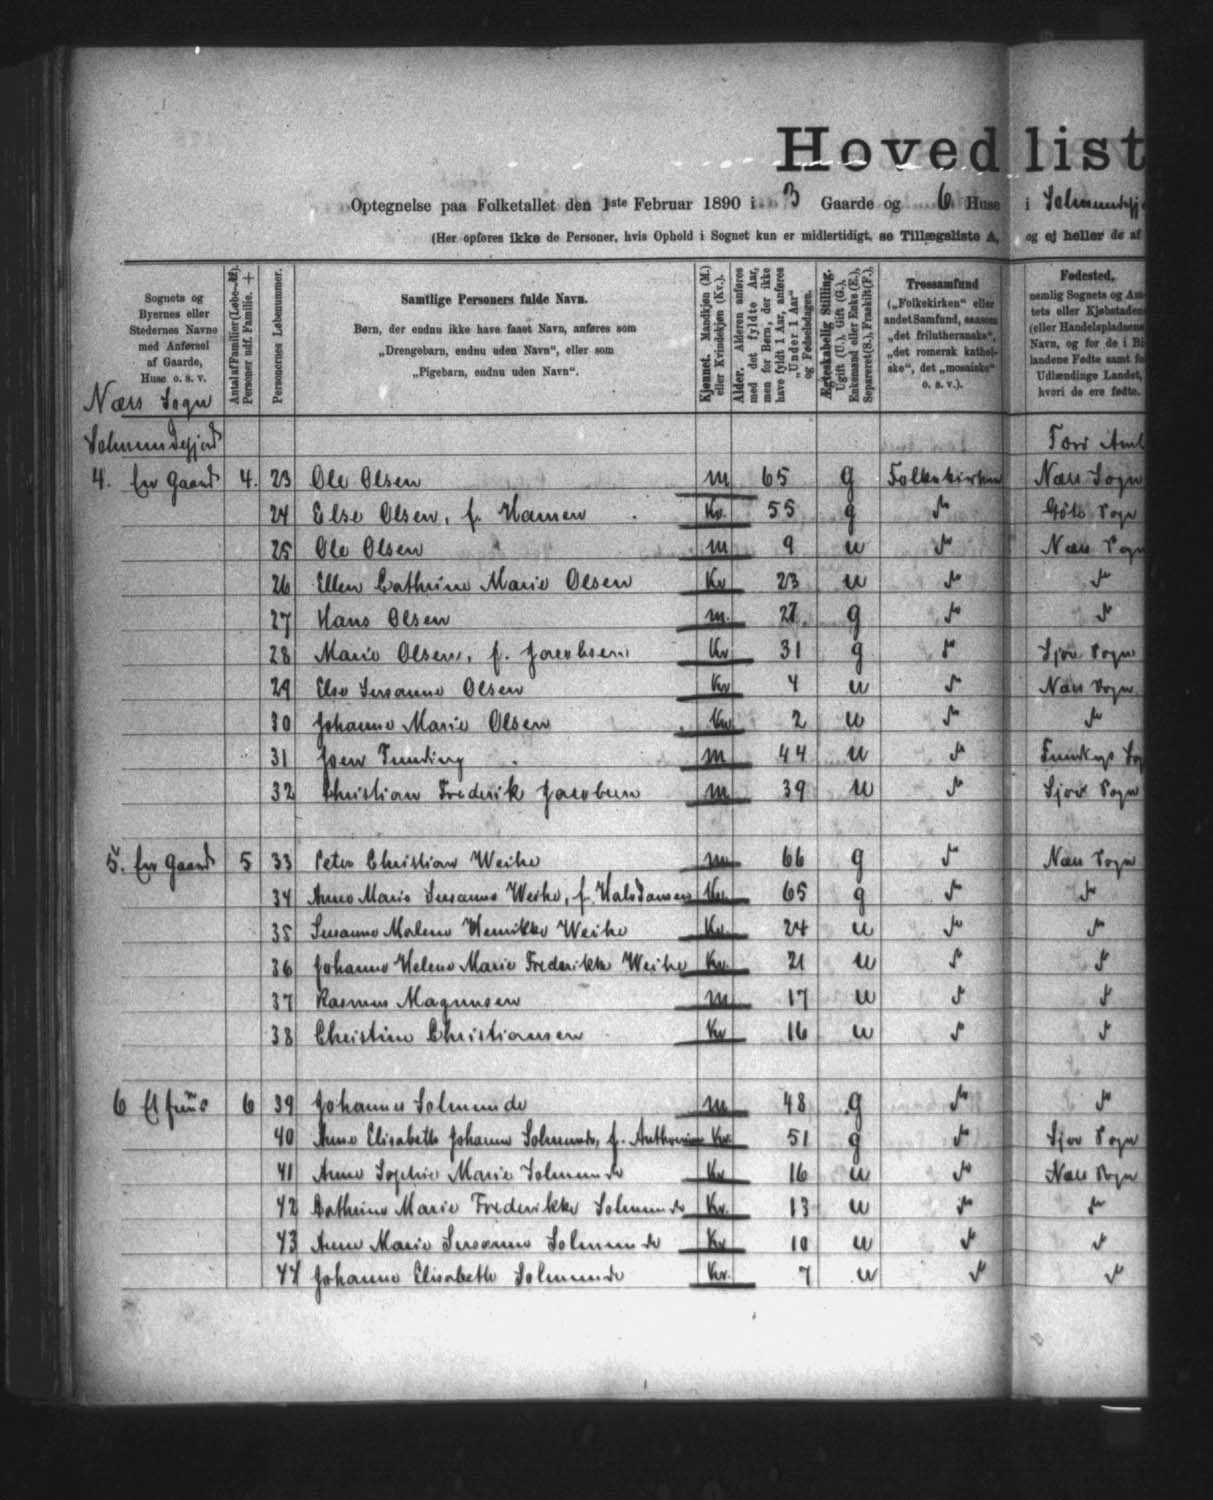 Hovedlist
Optegnelse paa Folketallet den 1ste Februar 1890 i 3 Gaarde og 6 Huse i
(Her opføres ikke de Personer, hvis Ophold i Sognet kun er midlertidigt, se Tillægsliste A, og ej heller de af
Sognets og Byernes eller Stedernes Navne med Anførsel af Gaarde, Huse o. s. v.
Antal af Familier
Personer udf. Familie.
Personernes Løbenummer.
Samtlige Personers fulde Navn.
Børn, der endnu ikke have faaet Navn, anføres som
„Drengebarn, endnu uden Navn“, eller som
„Pigebarn, endnu uden Navn“.
Kjønnet. Mandkjøn (M.) eller Kvindekjøn (Kv.).
Alder. Alderen anføres med det fyldte Aar, men for Børn, der ikke have fyldt 1 Aar, anføres „Under 1 Aar“ og Fødselsdagen.
Ægteskabelig Stilling. Ugift (U.), Gift (G.), Enkemand eller Enke (E.), Separeret (S.), Fraskilt (F.).
Trossamfund („Folkekirken“ eller andet Samfund, saasom „det frilutheranske“, „det romersk katholske“, det „mosaiske“ o. s. v.).
Fødested,
nemlig Sognets og Am
tets eller Kjøbstadens
(eller Handelspladsens
Navn, og for de i Bi
landene Fødte samt fo
Udlændinge Landet,
hvori de ere fødte.
Næs Sogn
Solmundefjord
4. En Gaard 4. 23 Ole Olsen M 65 g Folkekirken Næs Sogn
24 Else Olsen, f. Hansen Kv. 55 g Sogn
25 Ole Olsen M 9 u Næs Sogn
26 Ellen Cathrine Marie Olsen Kv 23 u
27 Hans Olsen M. 27 g
28 Marie Olsen, f. Jacobsen Kv 31 g Sjov Sogn
29 Else Susanne Olsen Kv 4 u Næs Sogn
30 Johanne Marie Olsen Kv. 2 u
31 Joen Funding M 44 u
32 Christian Frederik Jacobsen M 39 u Sogn
5. En Gaard 5 33 Peter Christian Weihe M 66 g Næs Sogn
34 Anne Marie Susanne Weihe, f. Kv. 65 g
35 Susanne Malene Henrikke Weihe Kv. 24 u
36 Johanne Helene Marie Frederikke Weihe Kv. 21 u
37 Rasmus Magnusen M 17 u
38 Christine Christiansen Kv 16 u
6 Et Huus 6 39 Johannes Solmunde M 48 g
40 Anne Elisabeth Johanne Solmunde, f. Kv. 51 g Sjov Sogn
41 Anne Sophie Marie Solmunde Kv 16 u Næs Sogn
42 Cathrine Marie Frederikke Solmunde Kv. 13 u
43 Anne Marie Susanne Solmunde Kv 10 u
44 Johanne Elisabeth Solmunde Kv. 7 u